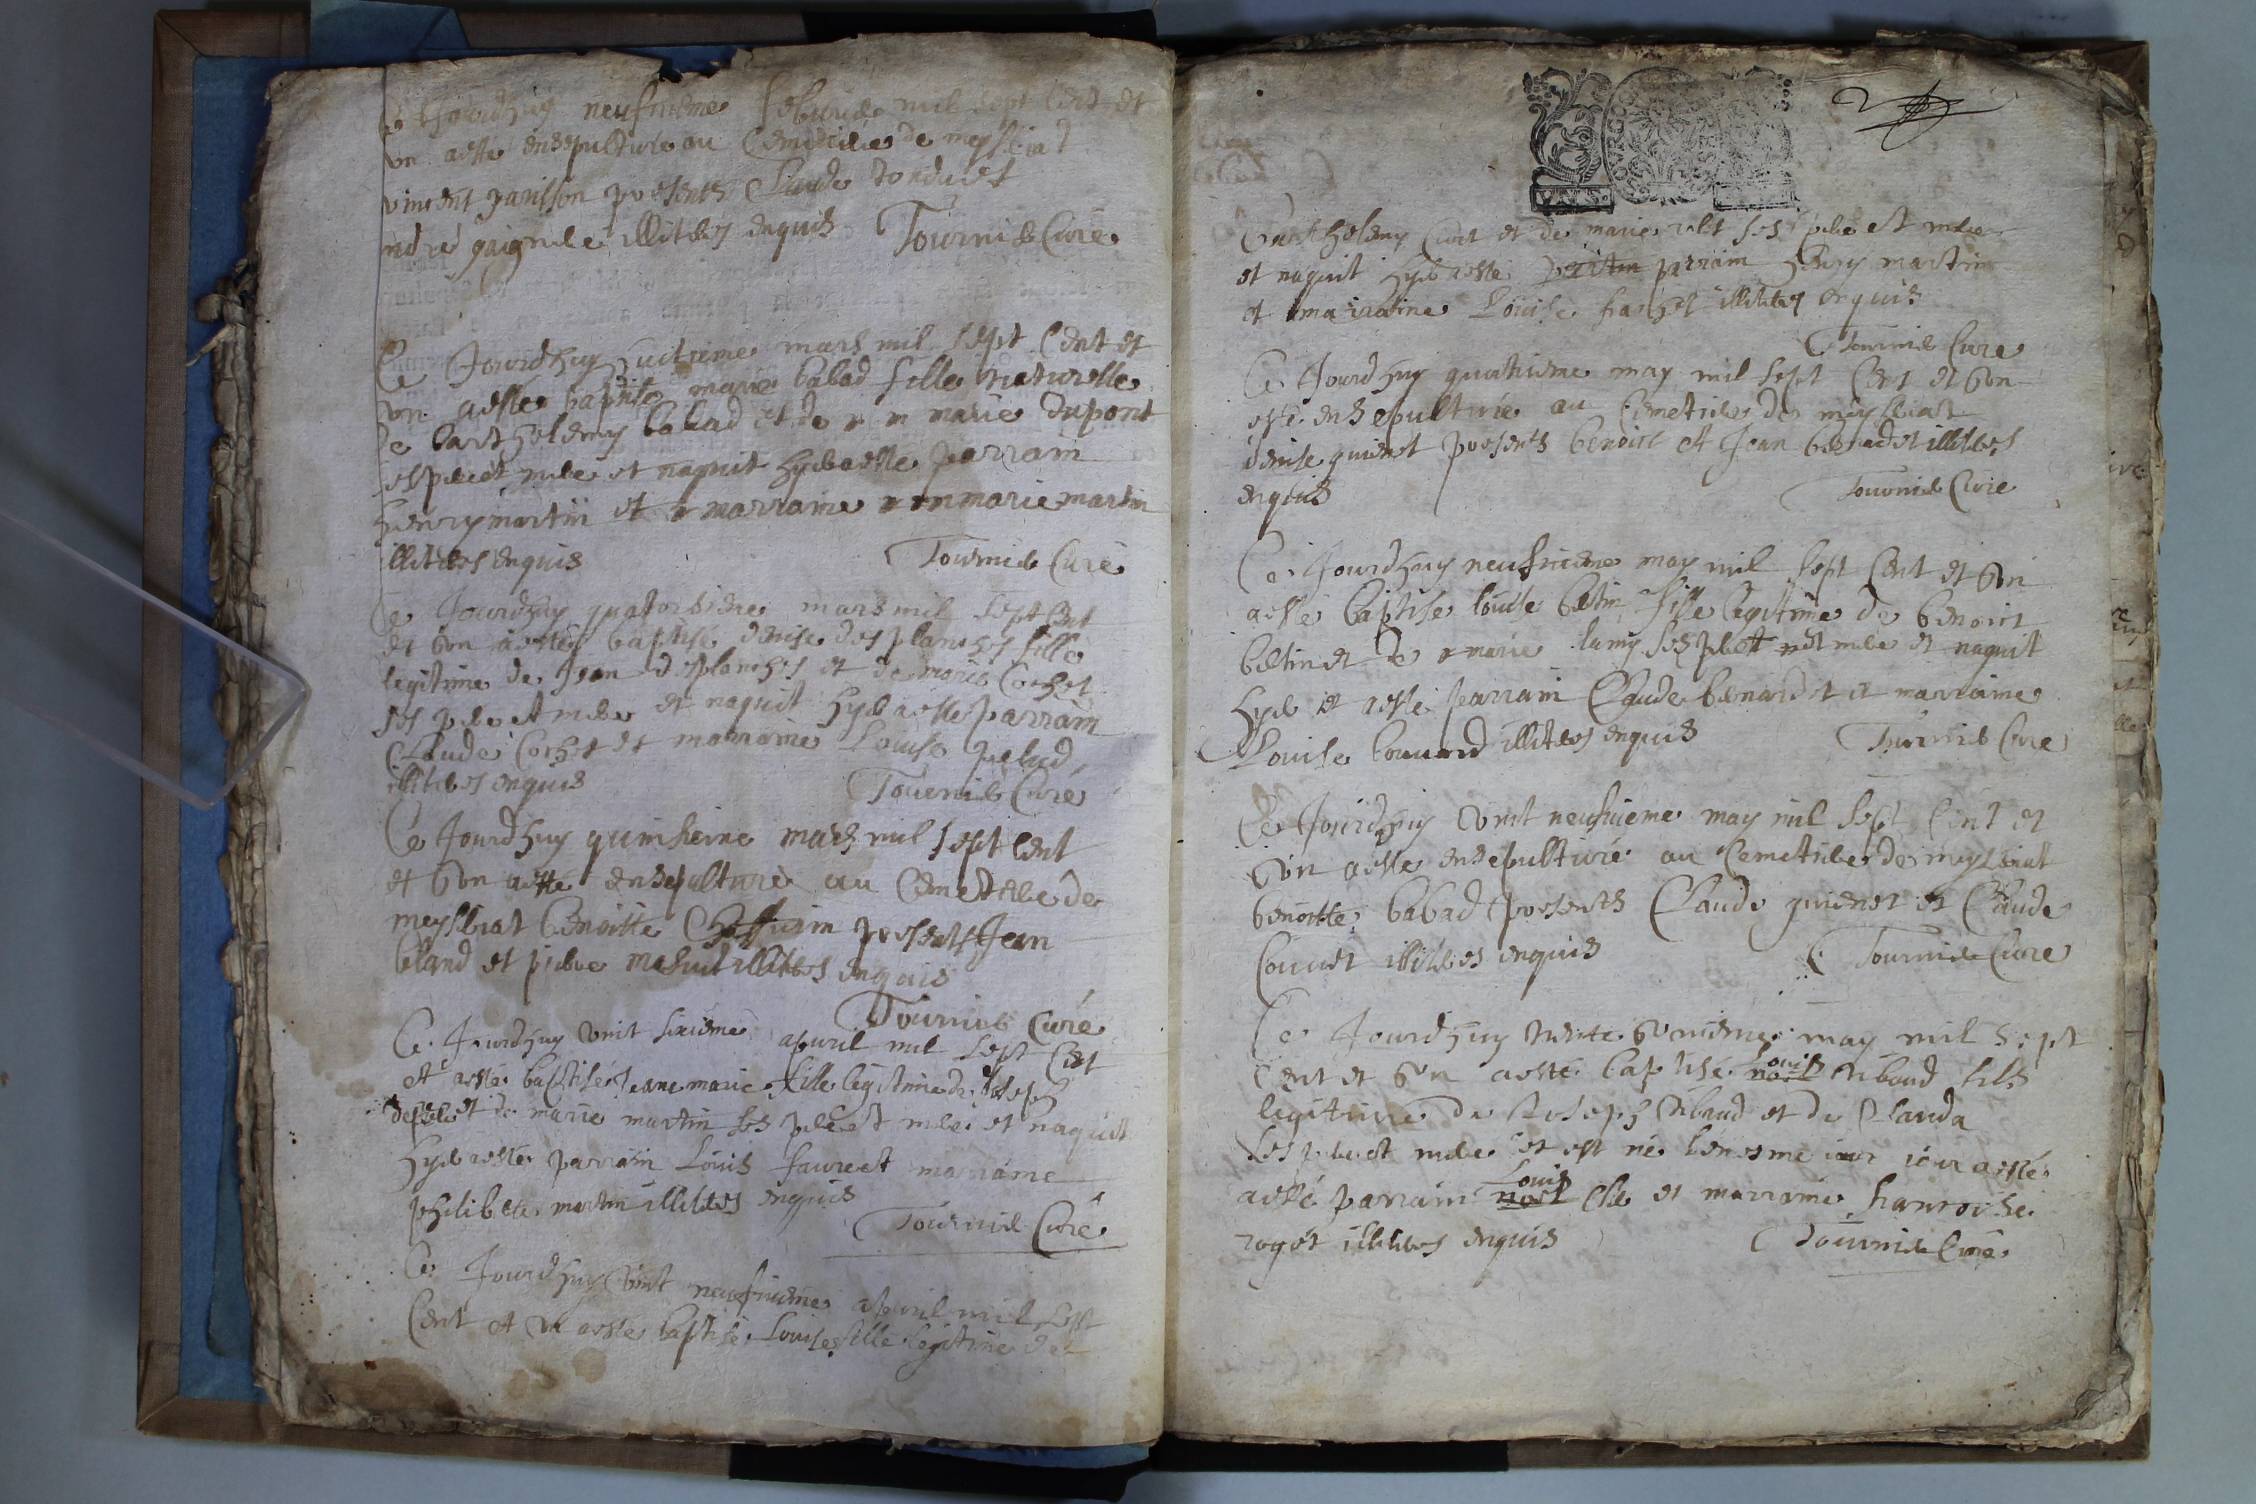 Ce Jourdhuy neufvieme febvrie mil sept Cent et
vn aesté ensepulture au Cemetiere de meysliat
vincent parisson presents Claude
illiteres enquis Tournie Curé
Ce Jourdhuy huitieme mars mil sept Cent et
vn aesté baptisé marie babad fille naturelle
de barthelemy babad et de marie dupont
ses pere et mere et naquit hyer aesté parrain
henry martin et marraine marie martin
illiteres enquis Tournie Curé
Ce Jourdhuy quatorsieme mars mil sept Cent
et Von aesté baptisé denise des planches fille
legitime de Jean desplanches et de marie Cochet
ses pere et mere et naquit hyer aesté parrain
Claude Cochet et marraine Louise
illiteres enquis Tournie Curé
Ce Jourdhuy quinsieme mars mil sept Cent
et Von aesté ensepulture au Cemetiere de
meysliat Benoitte presents Jean
bland et piere illiteres enquis
Tournie Curé
Ce Jourdhuy vint sixieme apvril mil sept Cent
et aesté baptisé Jeane marie fille legitime de Joseph
et de marie martin ses pere et mere et naquit
hyer aesté parrain Louis faure et marraine
philiberte martin illiteres enquis
Tournie Curé
Ce Jourdhuy Vint neufvieme apvril mil sept
Cent et vn aesté baptisé Louise fille legitime de
Barthelemy Curt et de marie ses pere et mere
et naquit hyer aesté parrain henry martin
et marraine Louise illiteres enquis
Tournie Cure
Ce Jourdhuy quatrieme may mil sept Cent et Von
esté ensepulturé au Cemetiere de meysliat
denise guienet presents benoict et Jean bernadet illiteres
enquis Tournie Cure
Ce Jourdhuy neufvieme may mil sept Cent et Von
aesté baptisé louise betin fille legitime de benoict
betin et de marie lamy ses pere et mere et naquit
hyer et aesté parrain Claude benardet et marraine
Louise bouvard illiteres enquis Tournie Cure
Ce Jourdhuy Vint neufvieme may mil sept Cent et
Von aesté ensepulturé au Cemetiere de meysliat
benoitte babad presents Claude guienet et Claude
Couvet illiteres enquis Tournie Cure
Ce Jourdhuy trente Vonieme may mil sept
Cent et Von aesté baptisé Louis ribaud fils
legitime de Joseph ribaud et de Clauda
ses pere et mere et est né le mesme jour
aesté parrain Louis et marraine francoise
roget illiteres enquis Tournie Cure